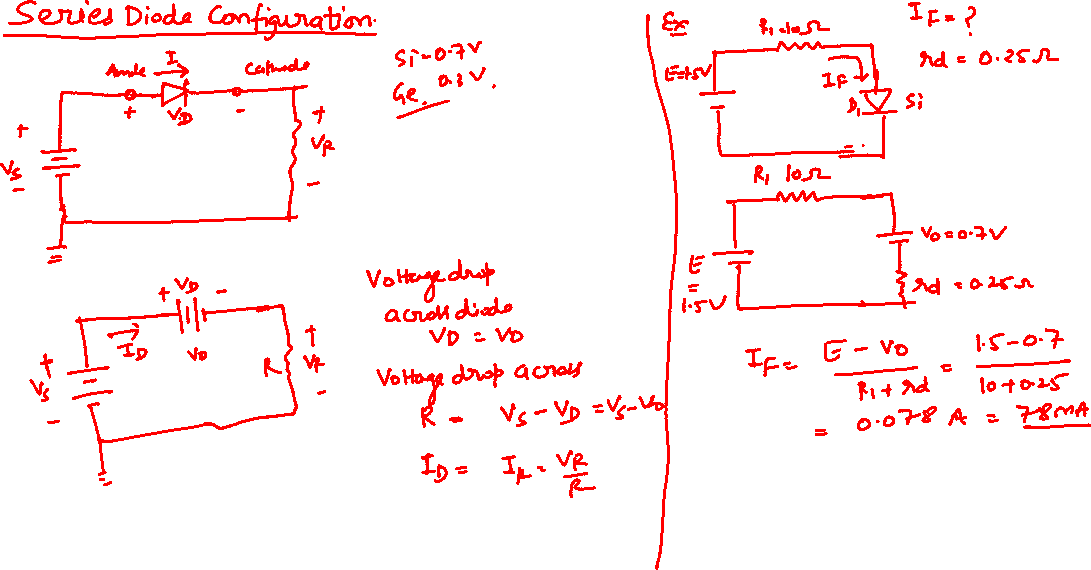 Series Diode Configuration.
Si - 0.7V
Ge. 0.3V.
Anode I Cathode
+ VD -
+
VS
-
+
VR
-
+ VD -
ID
VD
+
VS
-
R
+
VR
-
Voltage drop
across diode
VD = VD
Voltage drop across
R = VS - VD = VS - VD
ID = IR = VR/R
Ex
IF = ?
rd = 0.25Ω
R1 = 10Ω
E=1.5V
IF
D1
Si
R1 10Ω
E
=
1.5V
VD = 0.7V
rd = 0.25Ω
IF = E - VD / R1 + rd = 1.5 - 0.7 / 10 + 0.25
= 0.078 A = 78 mA